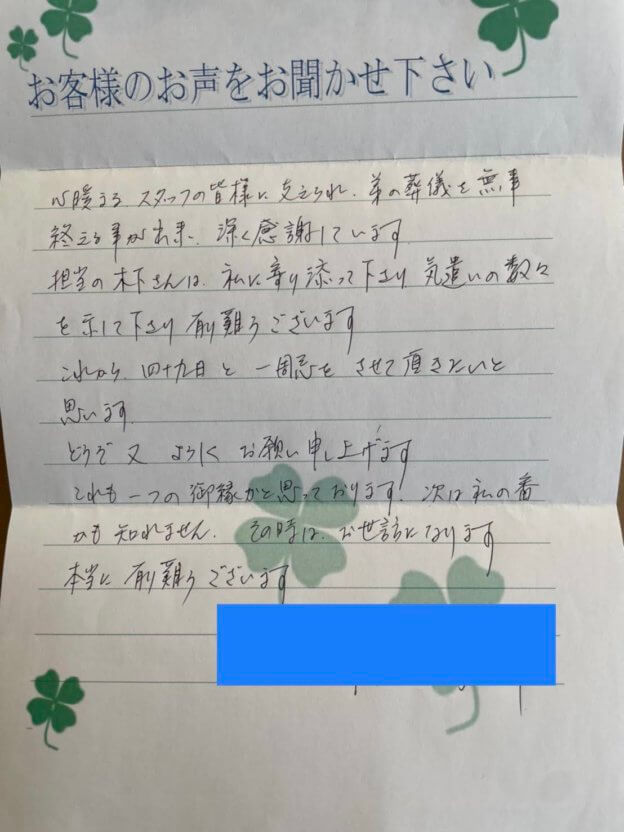 お客様のお声をお聞かせ下さい
心暖まる スタッフの皆様に支えられ、弟の葬儀を無事
終える事が出来、深く感謝しています
担当の木下さんは、私に寄り添って下さり 気遣いの数々
を示して下さり 有難うございます
これから、四十九日と 一周忌を させて頂きたいと
思います。
どうぞ又 よろしく お願い申し上げます
これも一つの御縁かと思っております。次は私の番
かも知れません。 その時は、お世話になります
本当に 有難うございます